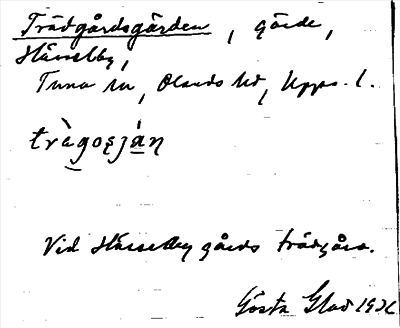 Trädgårdsgärden, gärde,
Hässelby,
Tuna sn, Olands hd, Upps. l.
tràgoșján
Vid Hässelby gårds trädgård.
Gösta Glad 1936